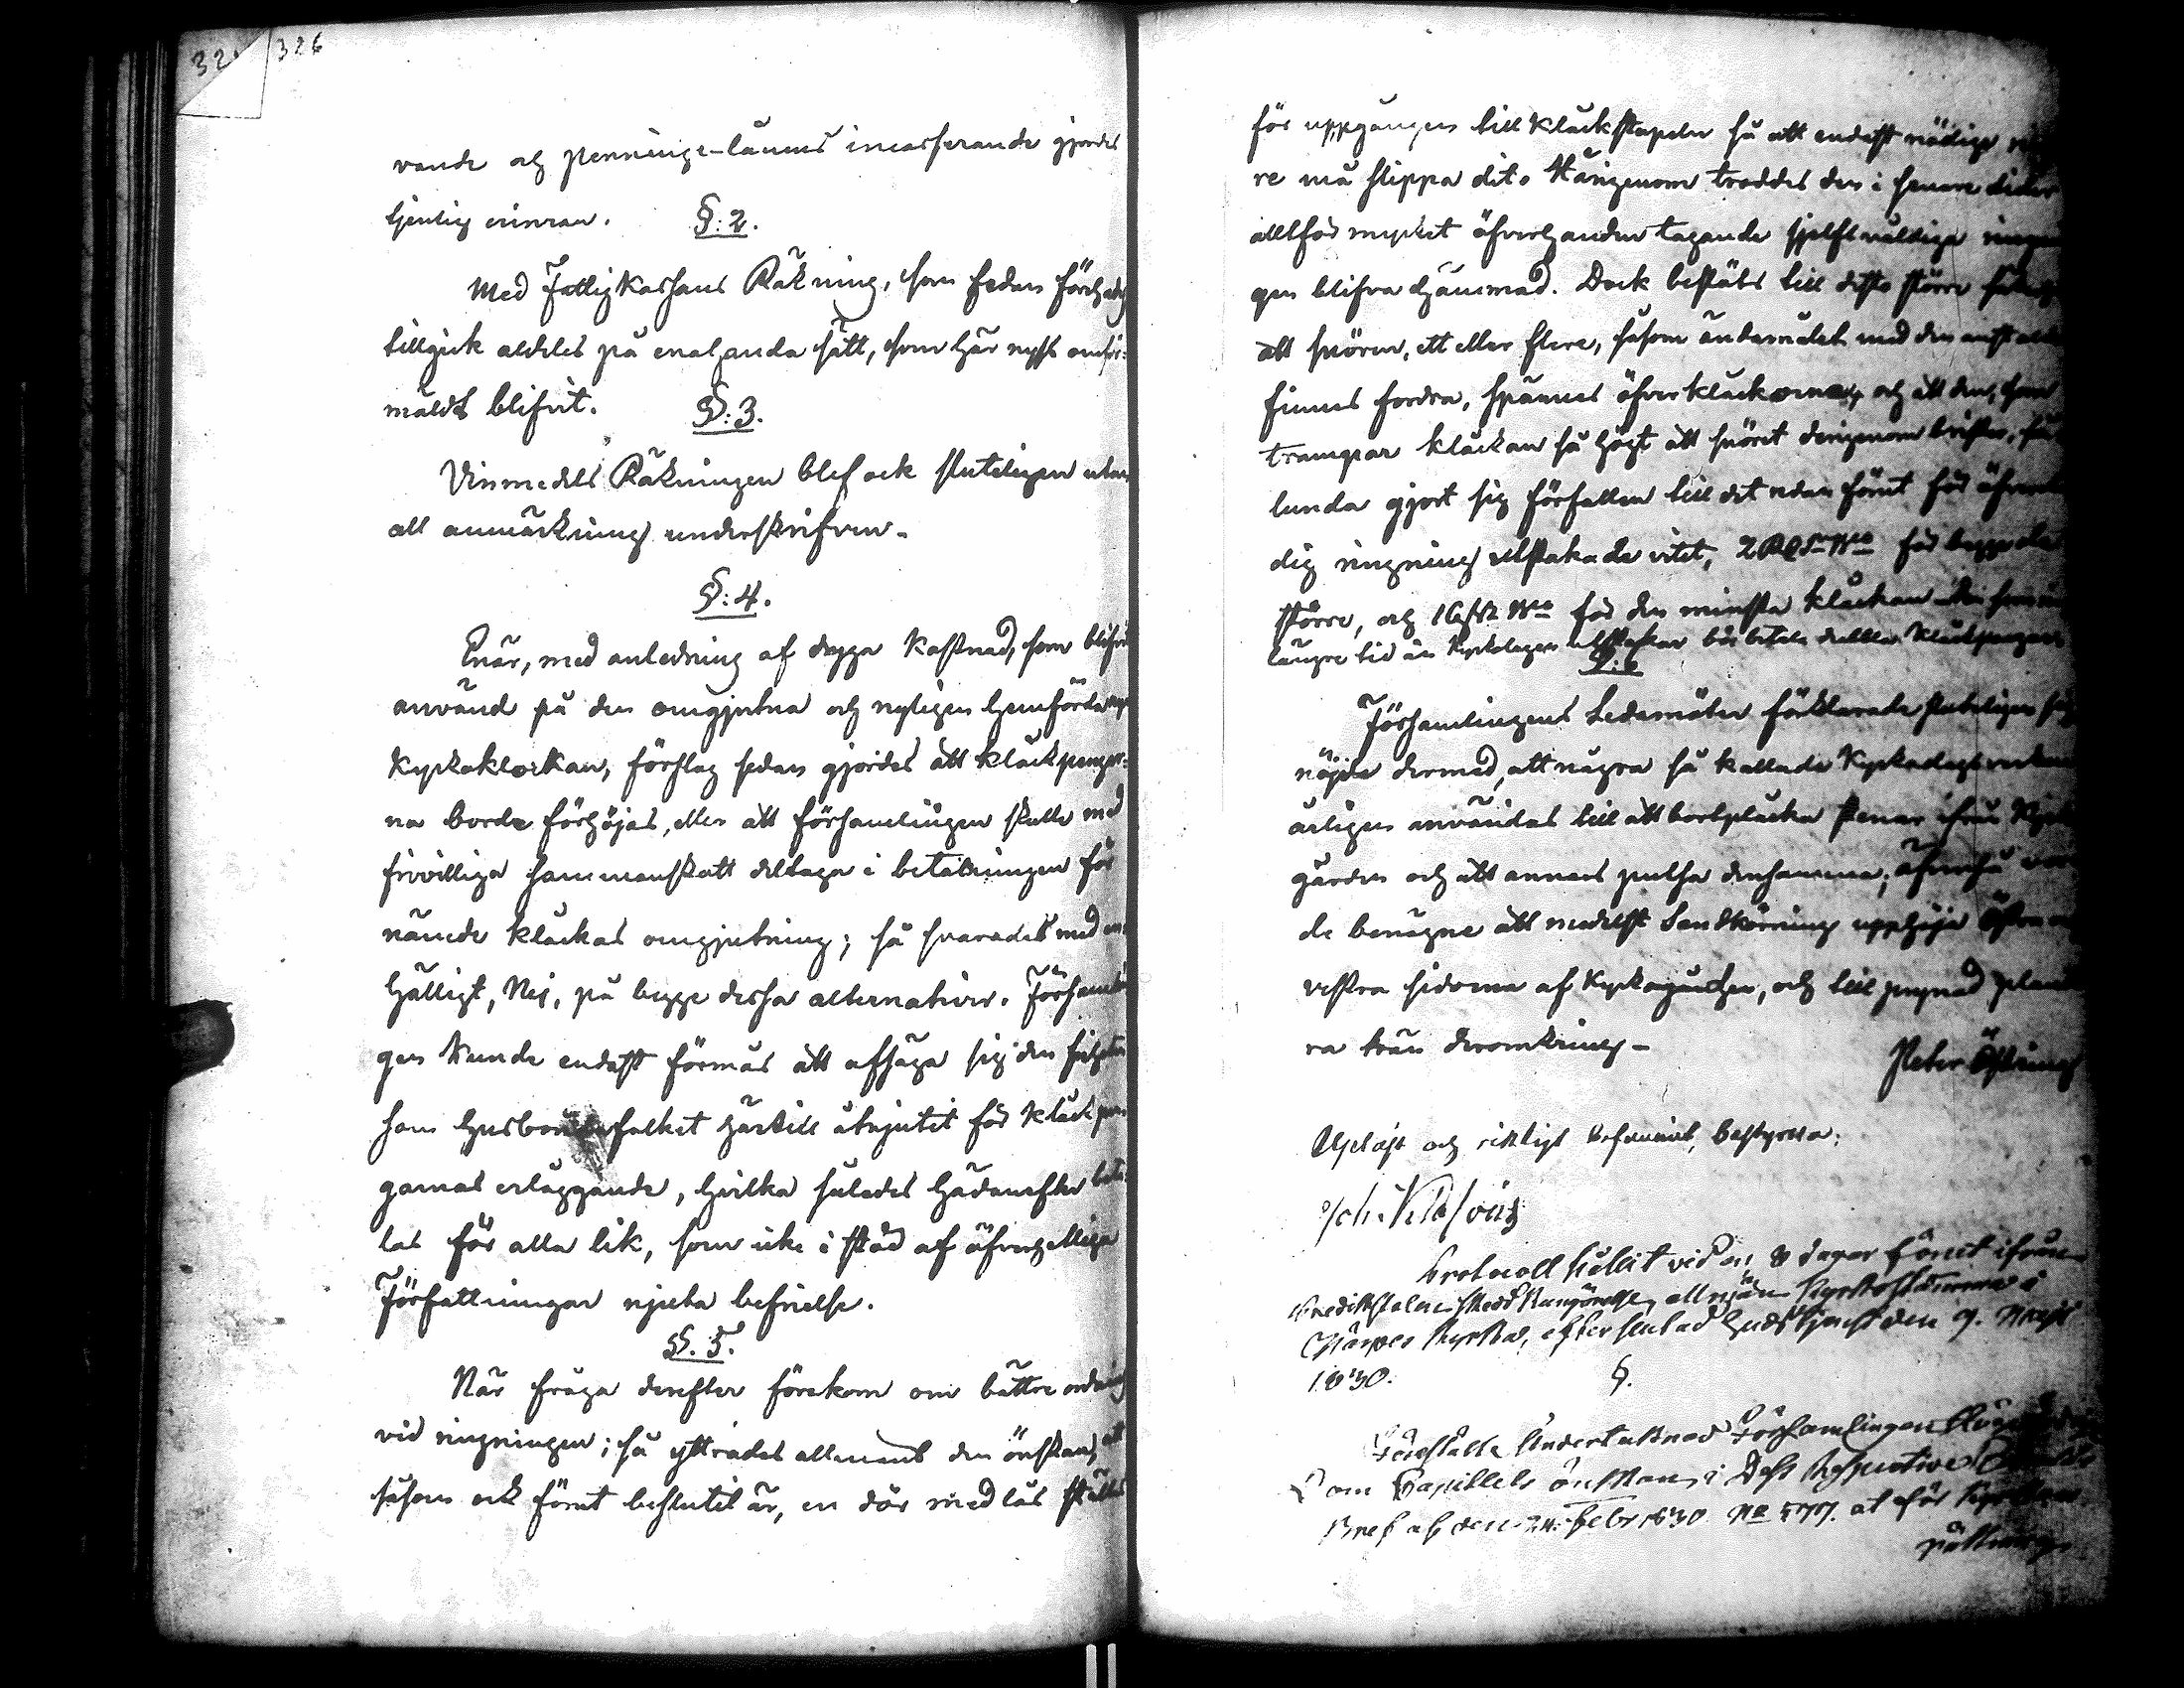 326
vande och Penninge-lånens incasserande gjordes
tjenlig erinran. §:2.
Med Fattigkassans Räkning, som sedan förehades
tillgick aldeles på enahanda sätt, som här nyss omför-
mäldt blifvit. §:3.
Vinmedels Räkningen blef ock slutligen utan
all anmärkning underskrifven.
§:4.
Enär, med anledning af dryga Kostnad, som blifvit
använd på den omgjutna och nyligen hemförda
Kyrkoklockan, förslag sedan gjordes att klockpengar-
na borde förhöjas, eller att församlingen skulle med
frivilliga sammanskott deltaga i betalningen för
nämde klockas omgjutning; så svarades med en-
hälligt, Nej, på begge dessa alternativer. Församlin-
gen kunde endast förmås att afsäga sig den friheten
som husbondefolket härtill åtnjutit för klockpen-
garnas erläggande, hvilka således hädanefter beta-
las för alla lik, som icke i stöd af öfverhetliga
Författningar njuta befrielse.
§.5.
När fråga derefter förekom om bättre ordning
vid ringningen; så yttrades allmänt den önskan, att
såsom ock förut beslutit är, en dör med lås ställes
för uppgången till klockstapeln så att endast nödige
re må slippa dit. Härigenom troddes den i senare tider
alltför mycket öfverhandtagande sjelfsvåldiga ringnin
gen blifva hämmad. Dock bestäts till desto större
att snören, ett eller flere, såsom ändamålet med den
finnes fordra, spännes öfver klockorna, och att den, som
trampar klockan så högt att snöret derigenom brister, så
lunda gjort sig förfallen till det redan förut för öfverdå
dig ringning utstakade vitet, 2 för begge de
större, och 16 för den minsta klockan
längre tid än Kyrkolagen utstakar bör betala dubbla Klockpengar
§:6
Församlingens Ledamöter förklarade slutligen sig
nöjda dermed, att några så kallade Kyrkodagsverken
årligen användas till att bortplocka stenar ifrån Kyrko
gården och att annars putsa densamma; äfvenså vore
de benägne att medelst Sandkörning upphöja östra och
vestra sidorna af Kyrkogården, och till prynad plante
ra trän deromkring.
Peter
Upläst och riktigt befunnit, bestyrka:
Protocoll hållit vid en, 8 dagar förut ifrån
Predikstolen skedd Kungörelse, allmän Kyrkostämma i
Kyrka, efter slutad Gudstjenst den 9. Maji
1830.
§.
Förestälte Undertecknad Församlingen
om Capitlets önskan, i Dess Respective
Bref af den 24. Febr 1830 No 577. at för